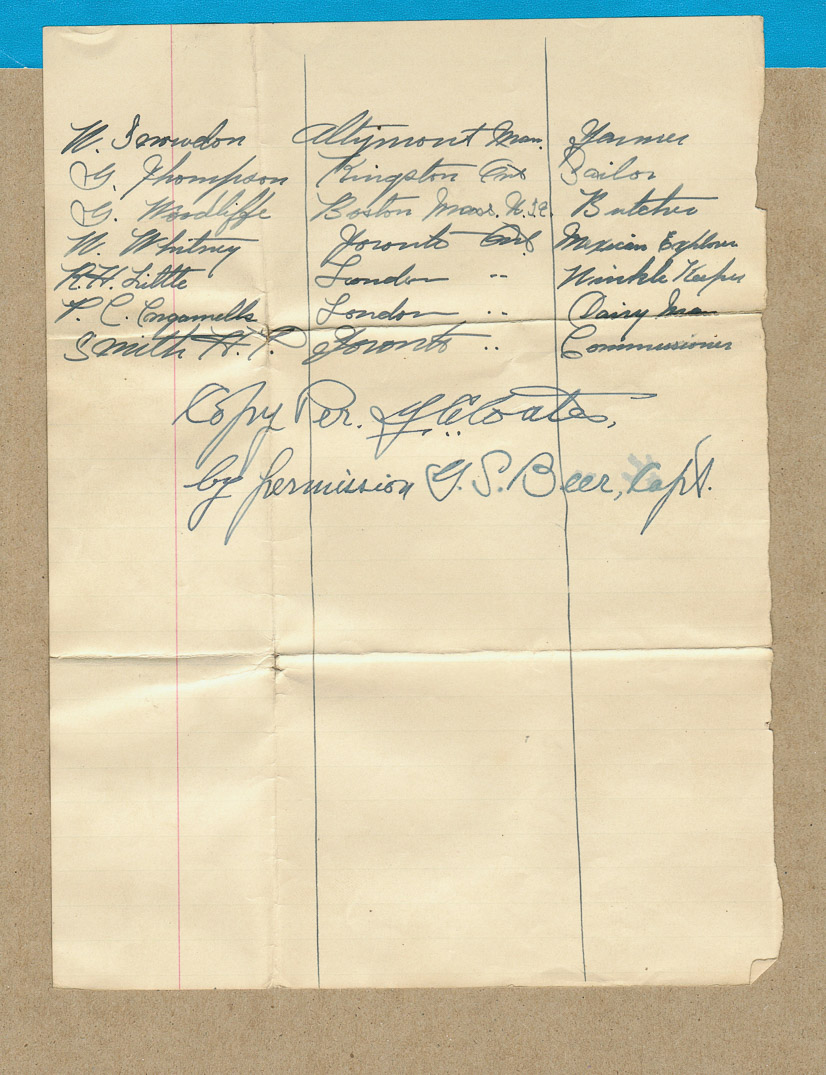 W. Snowdon Altymont Man. Farmer
G. Thompson Kingston Ont Sailor
G. Woodliffe Boston Mass. U.S.A. Butcher
W. Whitney Toronto Ont Mexican Explorer
R.H. Little London " Winkle Keeper
P. C. London " Dairy Man
Smith H. P. Toronto " Commissioner
Copy Per. Coates,
by permission G. S. Beer, Capt.